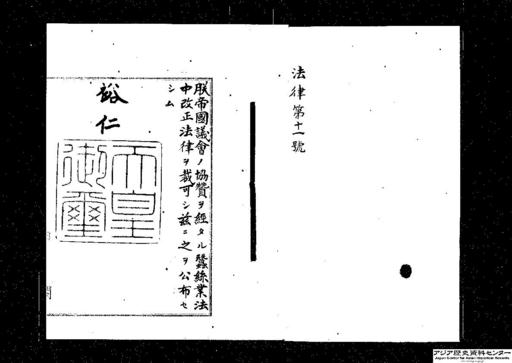 法律第十一號
朕帝國議會ノ協贊ヲ經タル蠶絲業法
中改正法律ヲ裁可シ茲ニ之ヲ公布セ
シム
裕仁
天皇
御璽
アジア歴史資料センター
Japan Center for Asian Historical Records